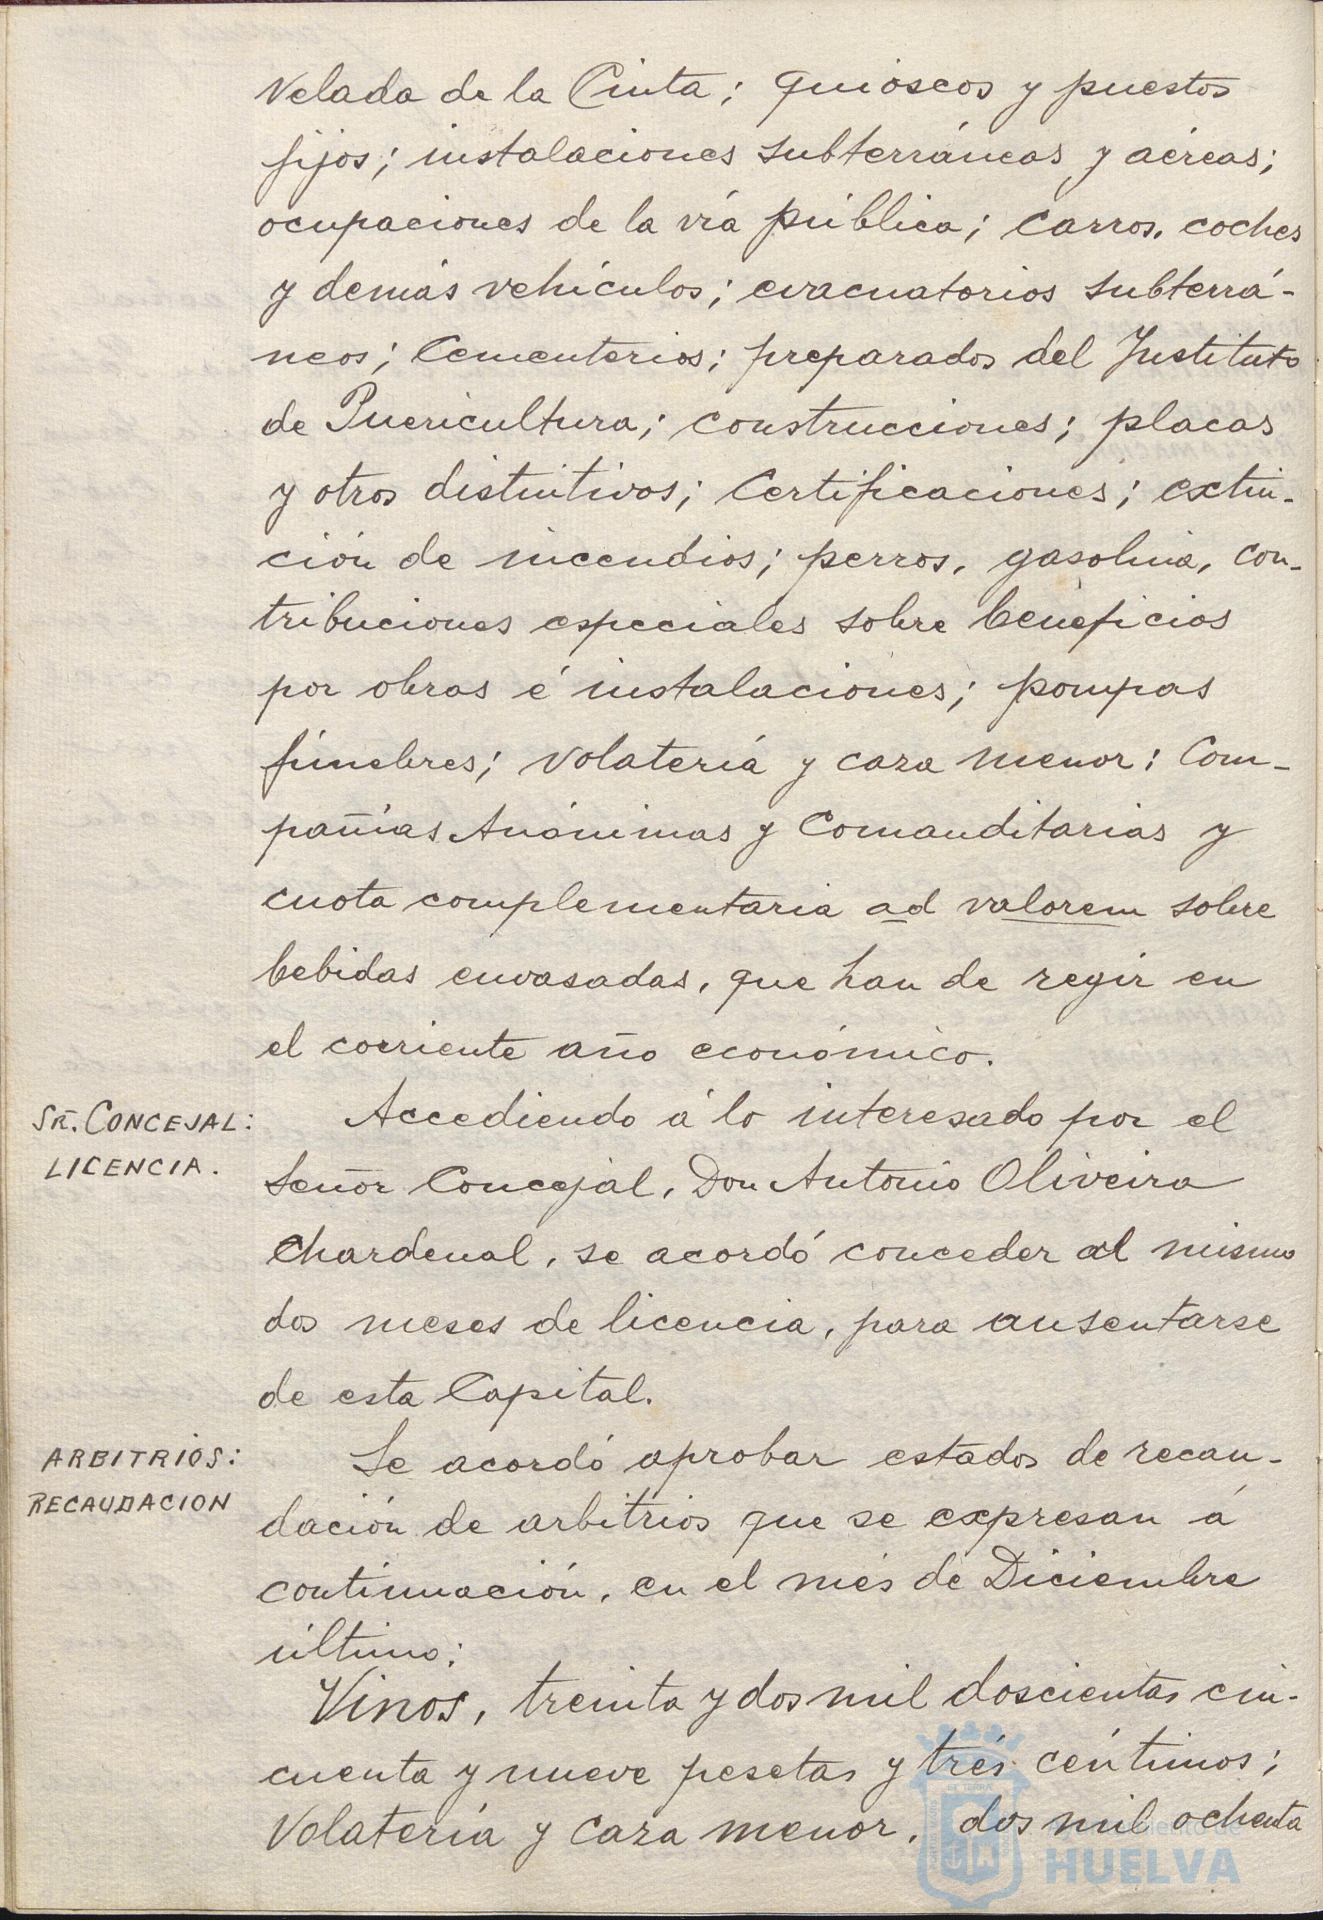 Velada de la Cinta; quióscos y puestos
fijos; instalaciones subterráneas y aéreas;
ocupaciones de la vía pública; carros, coches
y demás vehículos; evacuatorios subterrá-
neos; Cementerios; preparados del Instituto
de Puericultura; construcciones; placas
y otros distintivos; Certificaciones; extin-
ción de incendios; perros, gasolina, con-
tribuciones especiales sobre beneficios
por obras é instalaciones; pompas
fúnebres; volatería y caza menor; Com-
pañías Anónimas y Comanditarias y
cuota complementaria ad valorem sobre
bebidas envasadas, que han de regir en
el corriente año económico.
SR. CONCEJAL:
LICENCIA.
Accediendo á lo interesado por el
Señor Concejal, Don Antonio Oliveira
Chardenal, se acordó conceder al mismo
dos meses de licencia, para ausentarse
de esta Capital.
ARBITRIOS:
RECAUDACION
Se acordó aprobar estados de recau-
dación de arbitrios que se expresan á
continuación, en el més de Diciembre
último:
Vinos, treinta y dos mil doscientas cin-
cuenta y nueve pesetas y trés céntimos;
Volatería y caza menor, dos mil ochenta
Ayuntamiento de
HUELVA